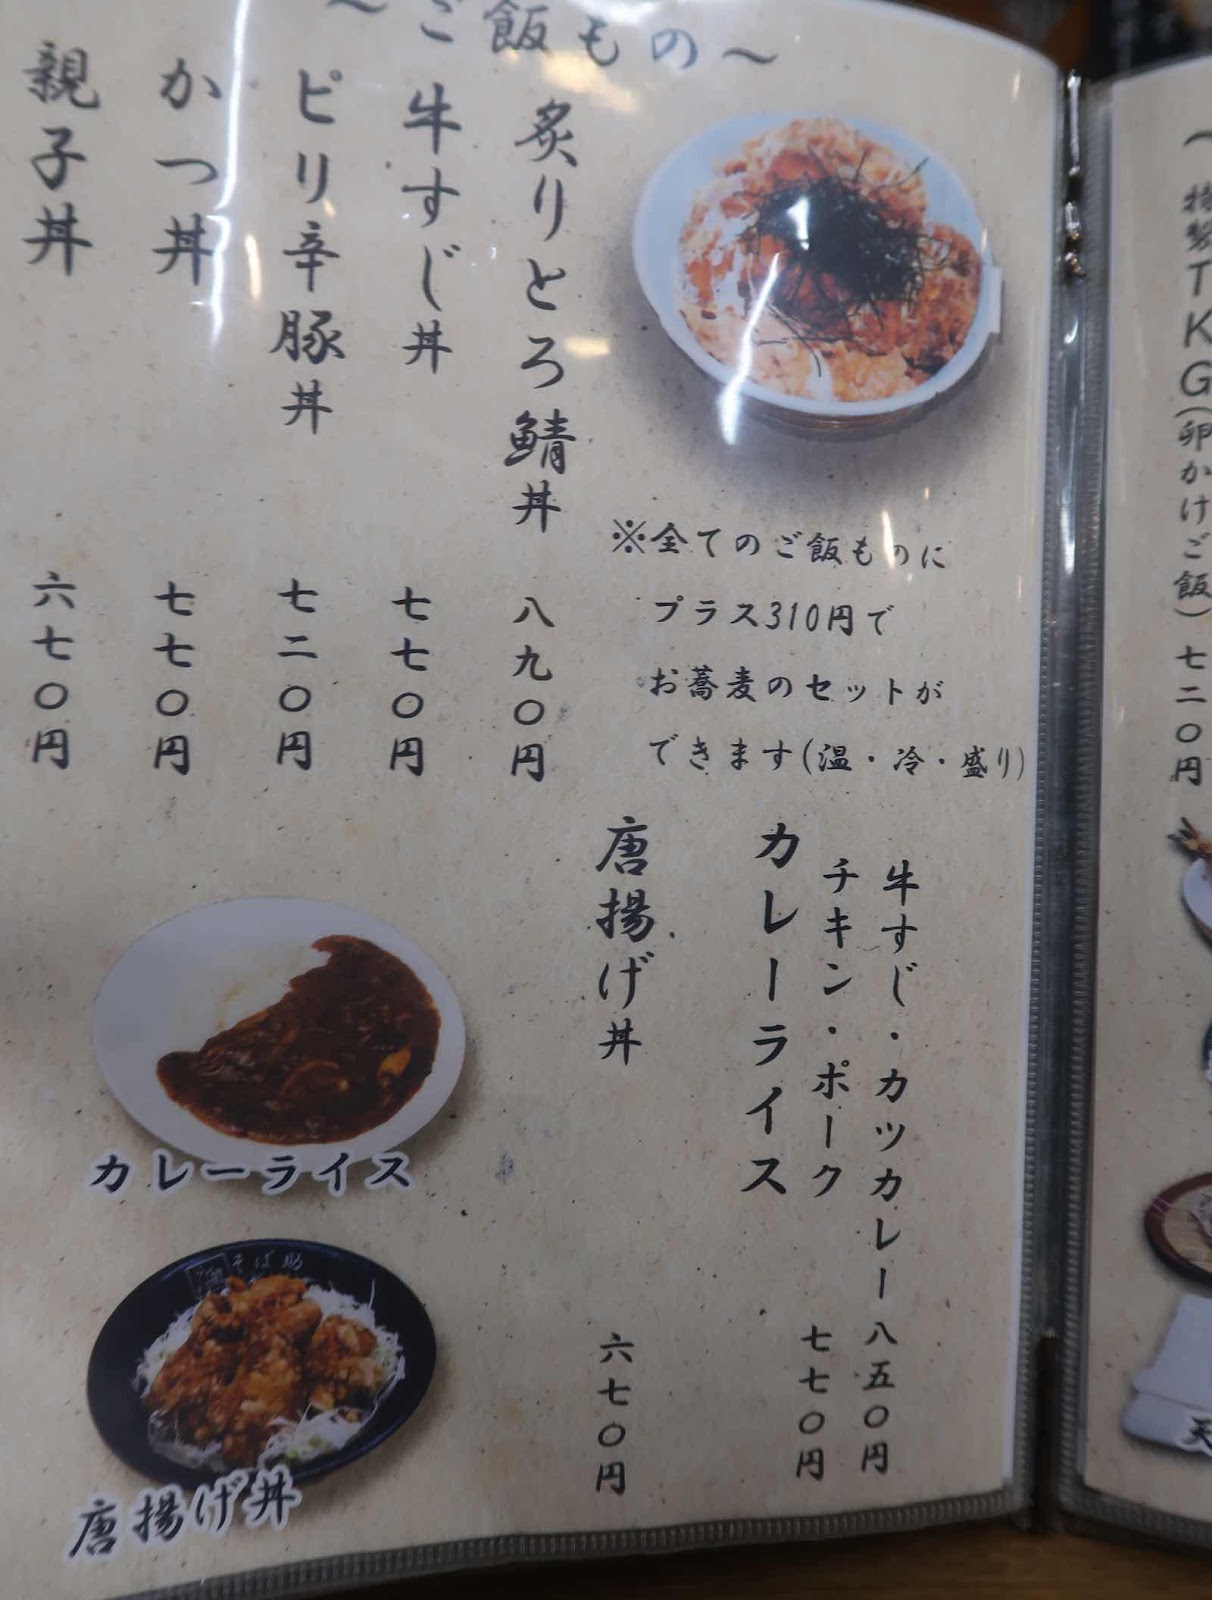 ～ご飯もの～
炙りとろ鯖丼 八九〇円
牛すじ丼 七七〇円
ピリ辛豚丼 七二〇円
かつ丼 七七〇円
親子丼 六七〇円
※全てのご飯ものに
プラス310円で
お蕎麦のセットが
できます(温・冷・盛り)
牛すじ・カツカレー 八五〇円
チキン・ポーク 七七〇円
カレーライス
唐揚げ丼 六七〇円
カレーライス
そば助
唐揚げ丼
～特製TKG(卵かけご飯) 七二〇円
天